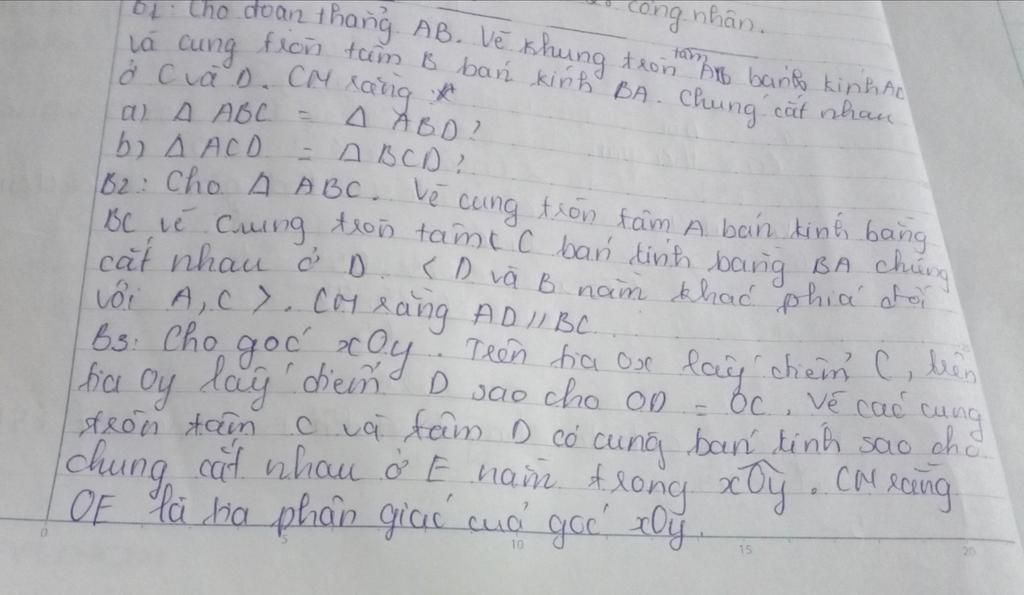 công nhân.
B1: Cho đoạn thẳng AB. Vẽ khung tròn tâm A bánh kính AC
và cung tròn tâm B bán kính BA. Chúng cắt nhau
ở C và D. CM rằng
a) Δ ABC = Δ ABD?
b) Δ ACD = Δ BCD?
B2: Cho Δ ABC. Vẽ cung tròn tâm A bán kính bằng
BC vẽ Cung tròn tâm C bán kính bằng BA chúng
cắt nhau ở D. < D và B nằm khác phía đối
với A, C >. CM rằng AD // BC
B3: Cho góc xOy. Trên tia Ox lấy điểm C, trên
tia Oy lấy điểm D sao cho OD = OC. Vẽ các cung
tròn tâm C và tâm D có cùng bán kính sao cho
chúng cắt nhau ở E nằm trong xÔy. CM rằng
OE là tia phân giác của góc xOy.
0 5 10 15 20